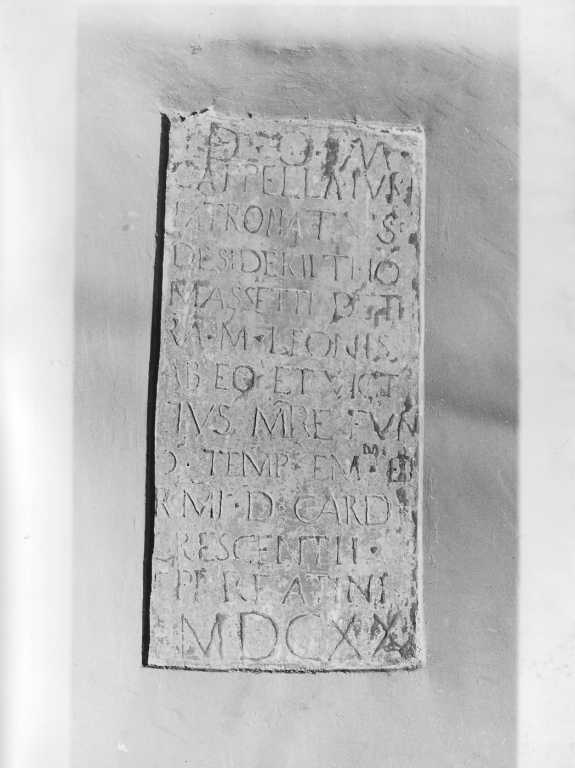 D · O · M ·
CAPPELLA IVR
PATRONATVS
DESIDERII THO
MASSETTI DE TI
RA · M · LEONIS
AB EO ET VICT
IVS MRE FVN
TEMP · EM · ET
RMI · D · CARD
CRESCENTII ·
EPI REATINI
MDCXX